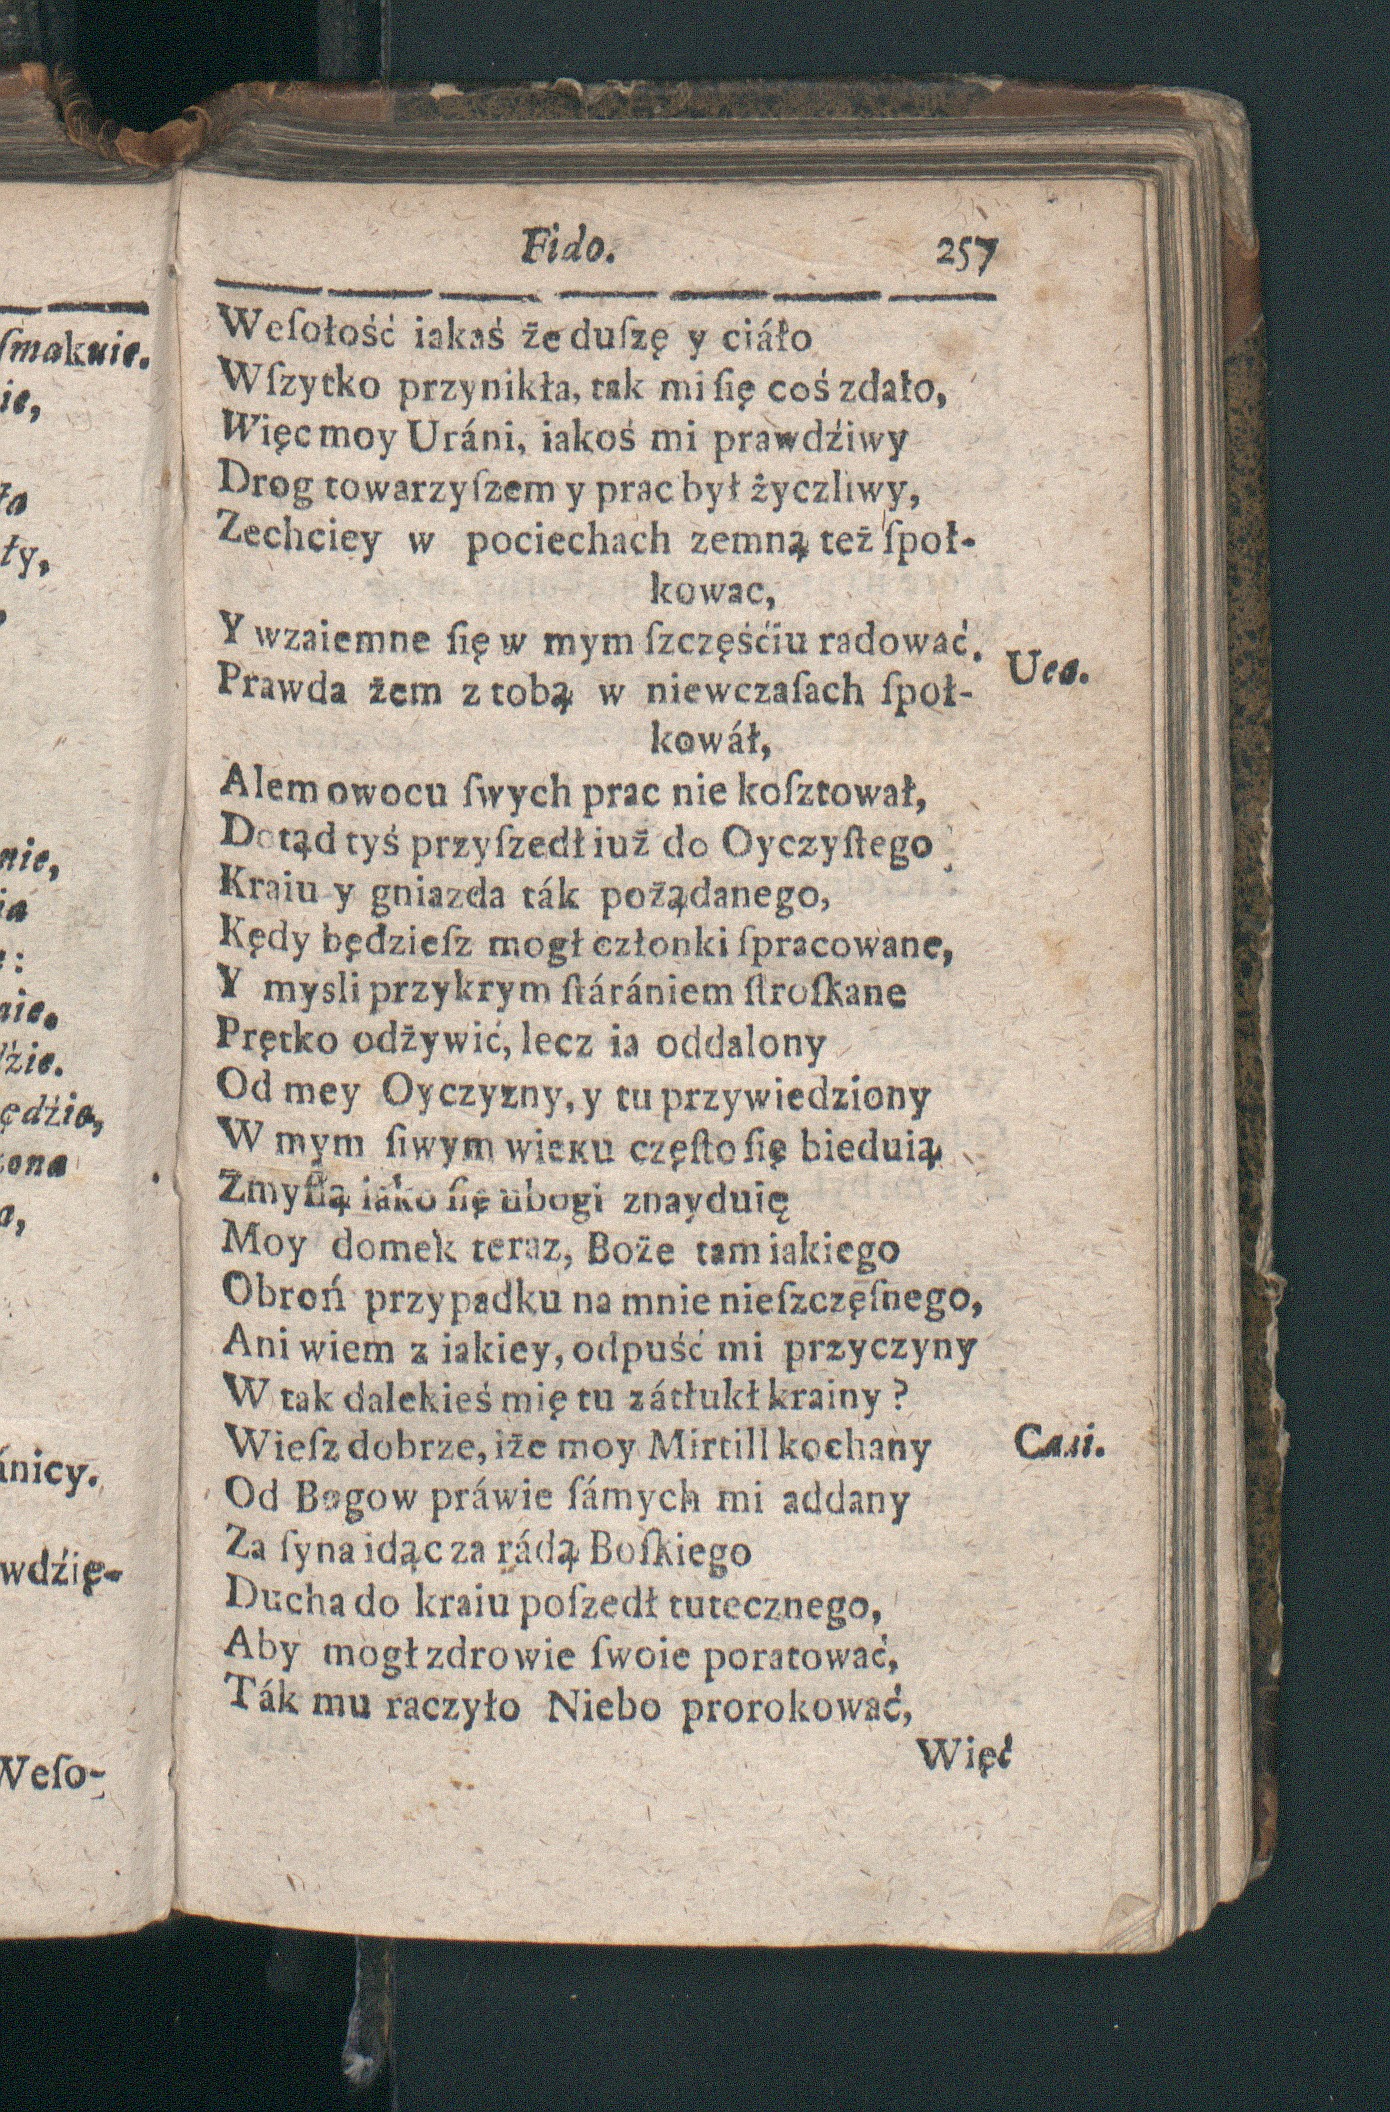 ſmakuie.
ie,
ły,
nie,
ia
nie.
dźie.
ędźie,
zona
a,
ánicy.
wdźię-
Weſo-
Fido. 257
Weſołość iakaś że duſzę y ciáło
Wſzytko przynikła, tak mi ſię coś zdało,
Więc moy Uráni, iakoś mi prawdźiwy
Drog towarzyſzem y prac był życzliwy,
Zechciey w pociechach zemną też ſpoł-
kowac,
Y wzaiemne ſię w mym ſzczęśćiu radować.
Prawda żem z tobą w niewczaſach ſpoł- Ura.
kowáł,
Alem owocu ſwych prac nie koſztował,
Dotąd tyś przyſzedł iuż do Oyczyſtego
Kraiu y gniazda ták pożądanego,
Kędy będzieſz mogł członki ſpracowane,
Y mysli przykrym ſtárániem ſtroſkane
Prętko odżywić, lecz ia oddalony
Od mey Oyczyzny, y tu przywiedziony
W mym ſiwym wieku częſto ſię bieduią
Zmyſlą iako ſię ubogi znayduię
Moy domek teraz, Boże tam iakiego
Obroń przypadku na mnie nieſzczęſnego,
Ani wiem z iakiey, odpuść mi przyczyny
W tak dalekieś mię tu zátłukł krainy?
Wieſz dobrze, iże moy Mirtill kochany Cari.
Od Bogow práwie ſámych mi addany
Za ſyna idąc za rádą Boſkiego
Ducha do kraiu poſzedł tutecznego,
Aby mogł zdrowie ſwoie poratować,
Ták mu raczyło Niebo prorokować,
Więć